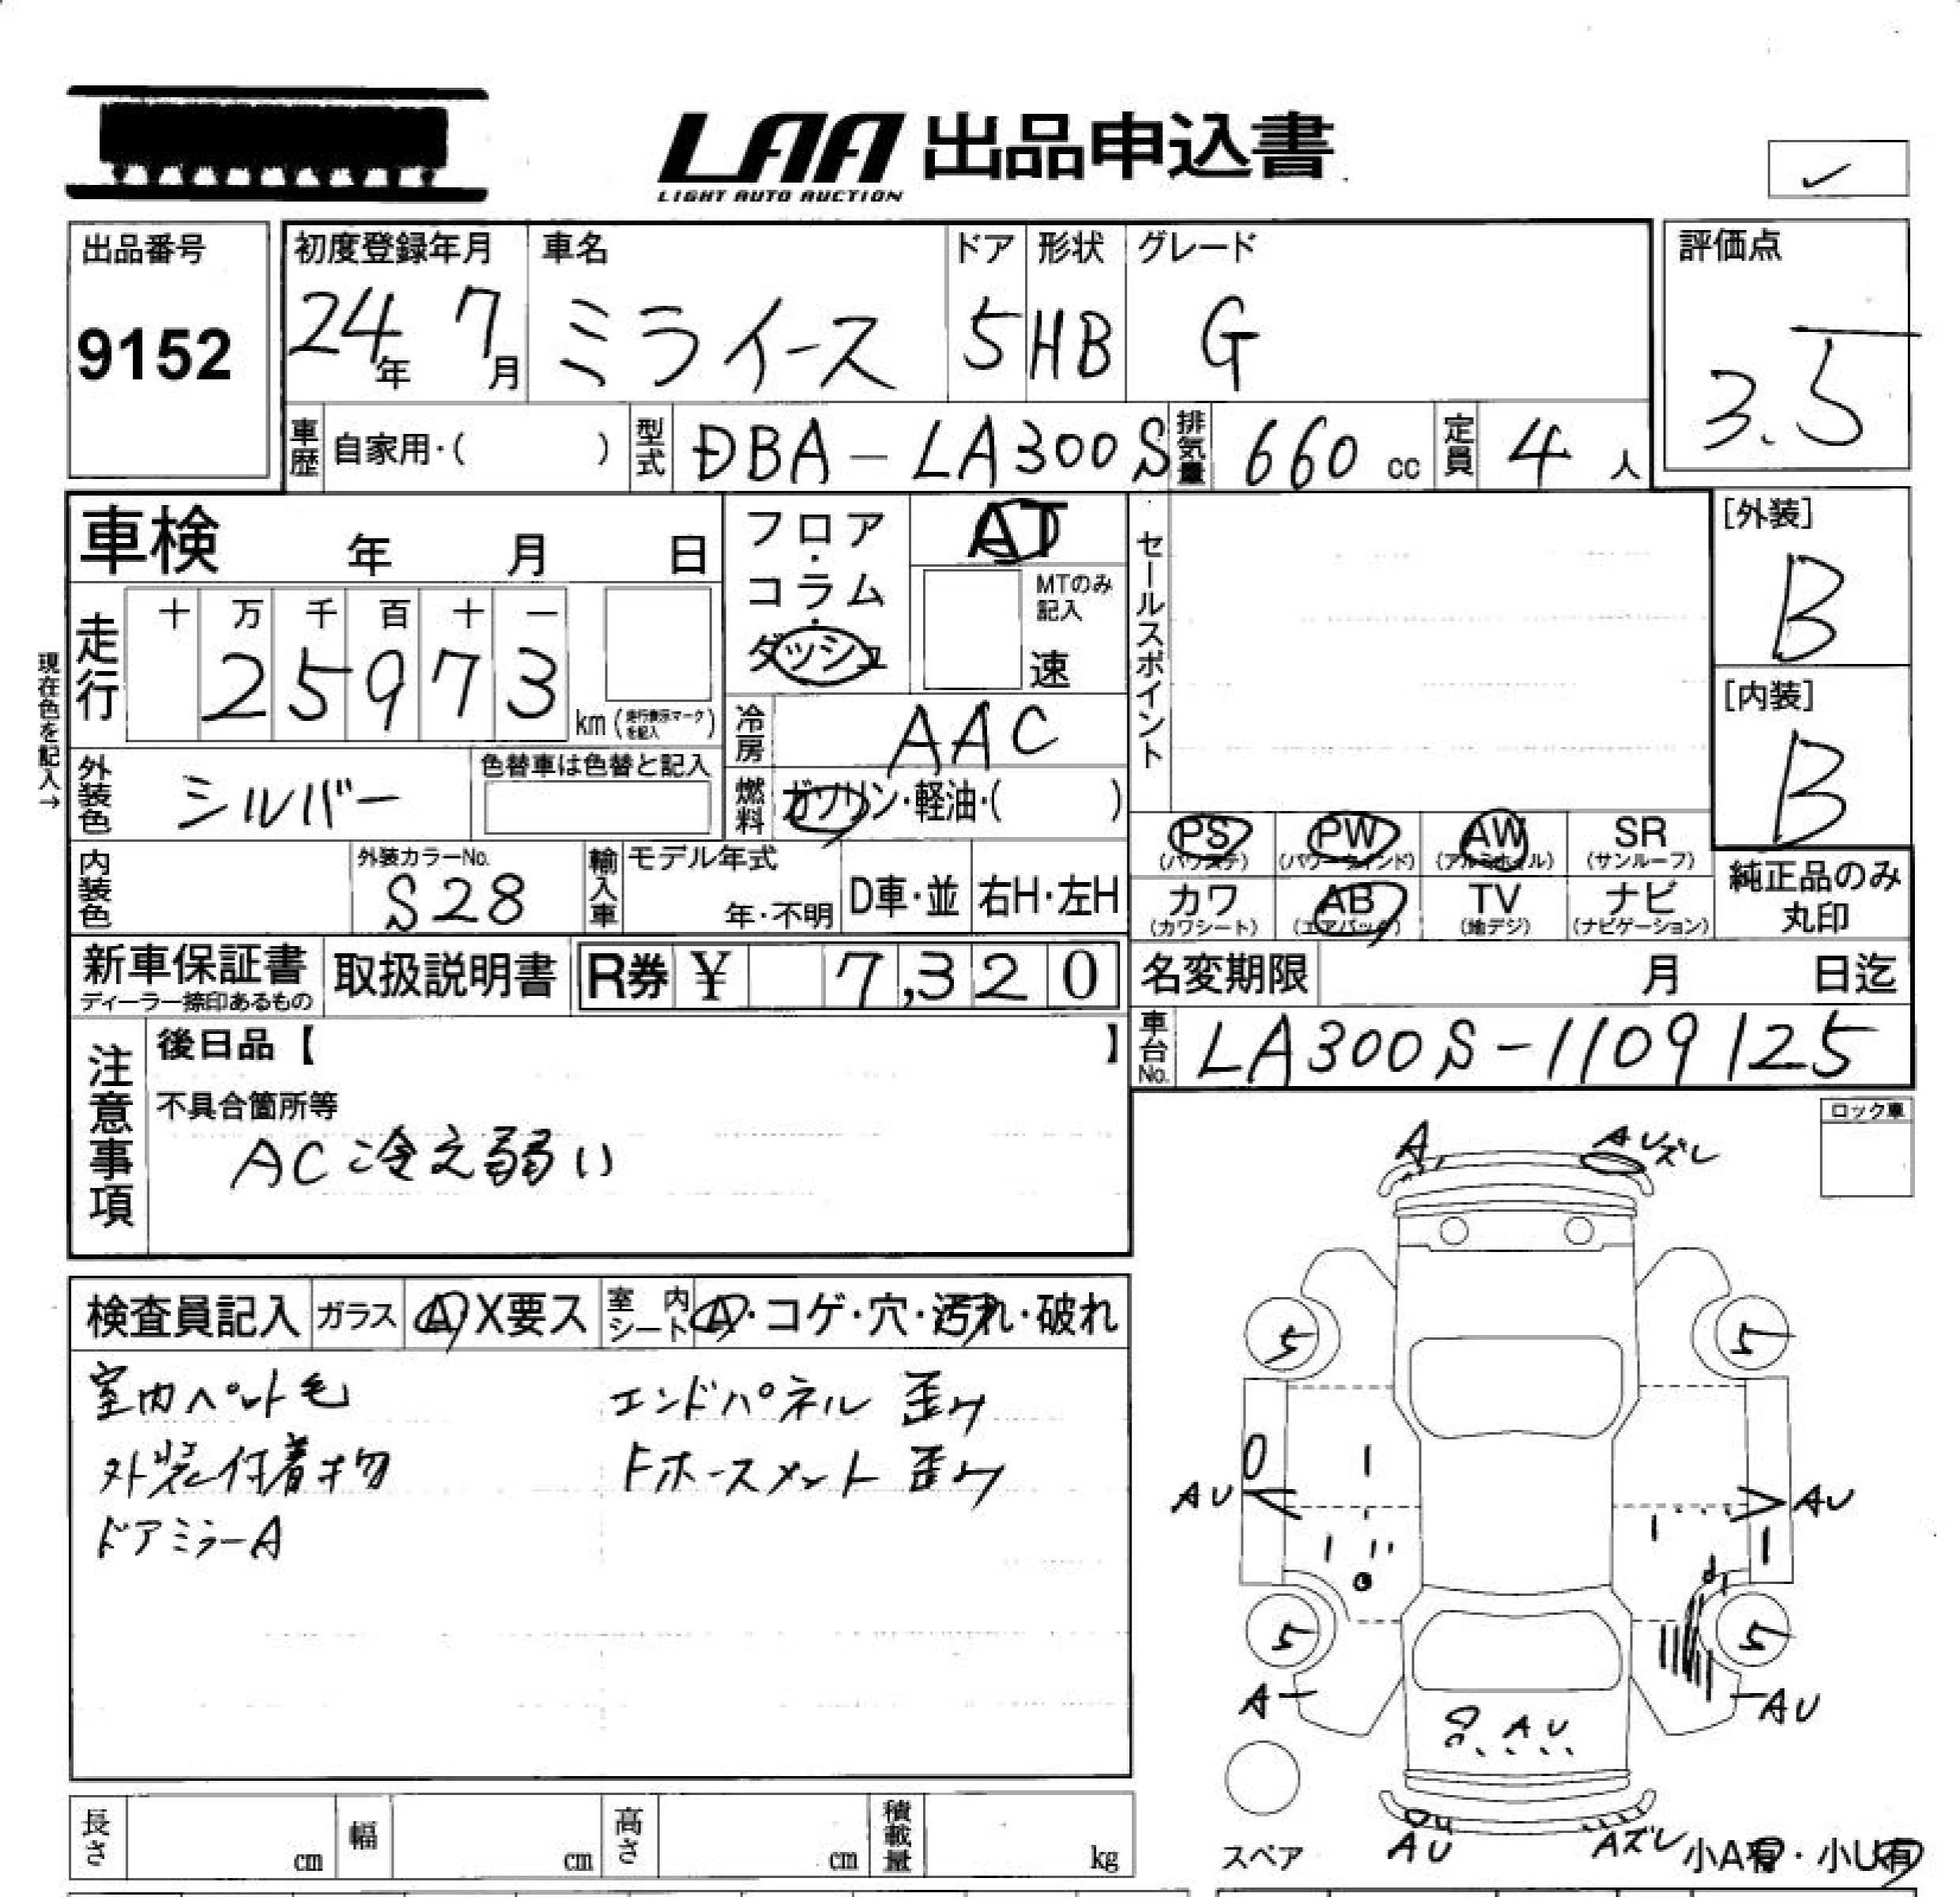 LAA 出品申込書
LIGHT AUTO AUCTION
出品番号
9152
初度登録年月
24年 7月
車名
ミライース
ドア
5
形状
HB
グレード
G
評価点
3.5
車歴 自家用・( )
型式 DBA-LA300S
排気量 660 cc
定員 4 人
車検 年 月 日
フロア・コラム・ダッシュ
AT
MTのみ記入
速
セールスポイント
[外装]
B
[内装]
B
現在色を記入→
走行
十 万 千 百 十 一
2 5 9 7 3
km (走行表示マークを記入)
冷房 AAC
外装色 シルバー
色替車は色替と記入
燃料 ガソリン・軽油・( )
内装色
外装カラーNo.
S28
輸入車 モデル年式
年・不明
D車・並
右H・左H
PS (パワステ)
PW (パワーウィンド)
AW (アルミホイル)
SR (サンルーフ)
カワ (カワシート)
AB (エアバック)
TV (地デジ)
ナビ (ナビゲーション)
純正品のみ
丸印
新車保証書
ディーラー捺印あるもの
取扱説明書
R券 ¥ 7,320
名変期限 月 日迄
車台No. LA300S-1109125
注意事項
後日品【 】
不具合箇所等
AC冷え弱い
ロック車
検査員記入
ガラス A X要ス
室内シート A・コゲ・穴・汚れ・破れ
室内ペット毛 エンドパネル 歪み
外装付着物 Fホースメント 歪み
ドアミラーA
A AUズレ
5 5
AU AU
5 5
A AU
AU
スペア
AU Aズレ
小A有・小U有
長さ cm
幅 cm
高さ cm
積載量 kg